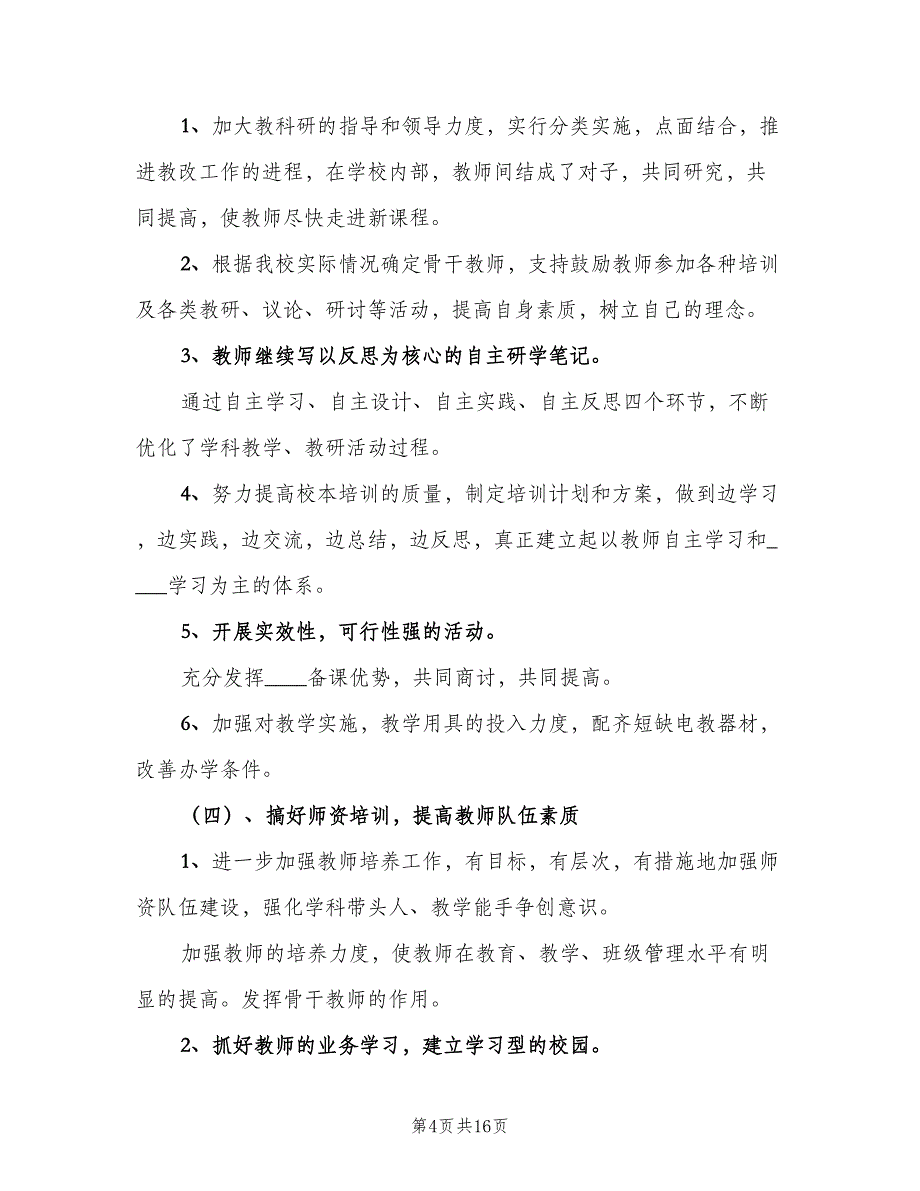 1、加大教科研的指导和领导力度，实行分类实施，点面结合，推
进教改工作的进程，在学校内部，教师间结成了对子，共同研究，共
同提高，使教师尽快走进新课程。
2、根据我校实际情况确定骨干教师，支持鼓励教师参加各种培训
及各类教研、议论、研讨等活动，提高自身素质，树立自己的理念。
3、教师继续写以反思为核心的自主研学笔记。
通过自主学习、自主设计、自主实践、自主反思四个环节，不断
优化了学科教学、教研活动过程。
4、努力提高校本培训的质量，制定培训计划和方案，做到边学习
，边实践，边交流，边总结，边反思，真正建立起以教师自主学习和_
___学习为主的体系。
5、开展实效性，可行性强的活动。
充分发挥____备课优势，共同商讨，共同提高。
6、加强对教学实施，教学用具的投入力度，配齐短缺电教器材，
改善办学条件。
（四）、搞好师资培训，提高教师队伍素质
1、进一步加强教师培养工作，有目标，有层次，有措施地加强师
资队伍建设，强化学科带头人、教学能手争创意识。
加强教师的培养力度，使教师在教育、教学、班级管理水平有明
显的提高。发挥骨干教师的作用。
2、抓好教师的业务学习，建立学习型的校园。
第4页共16页